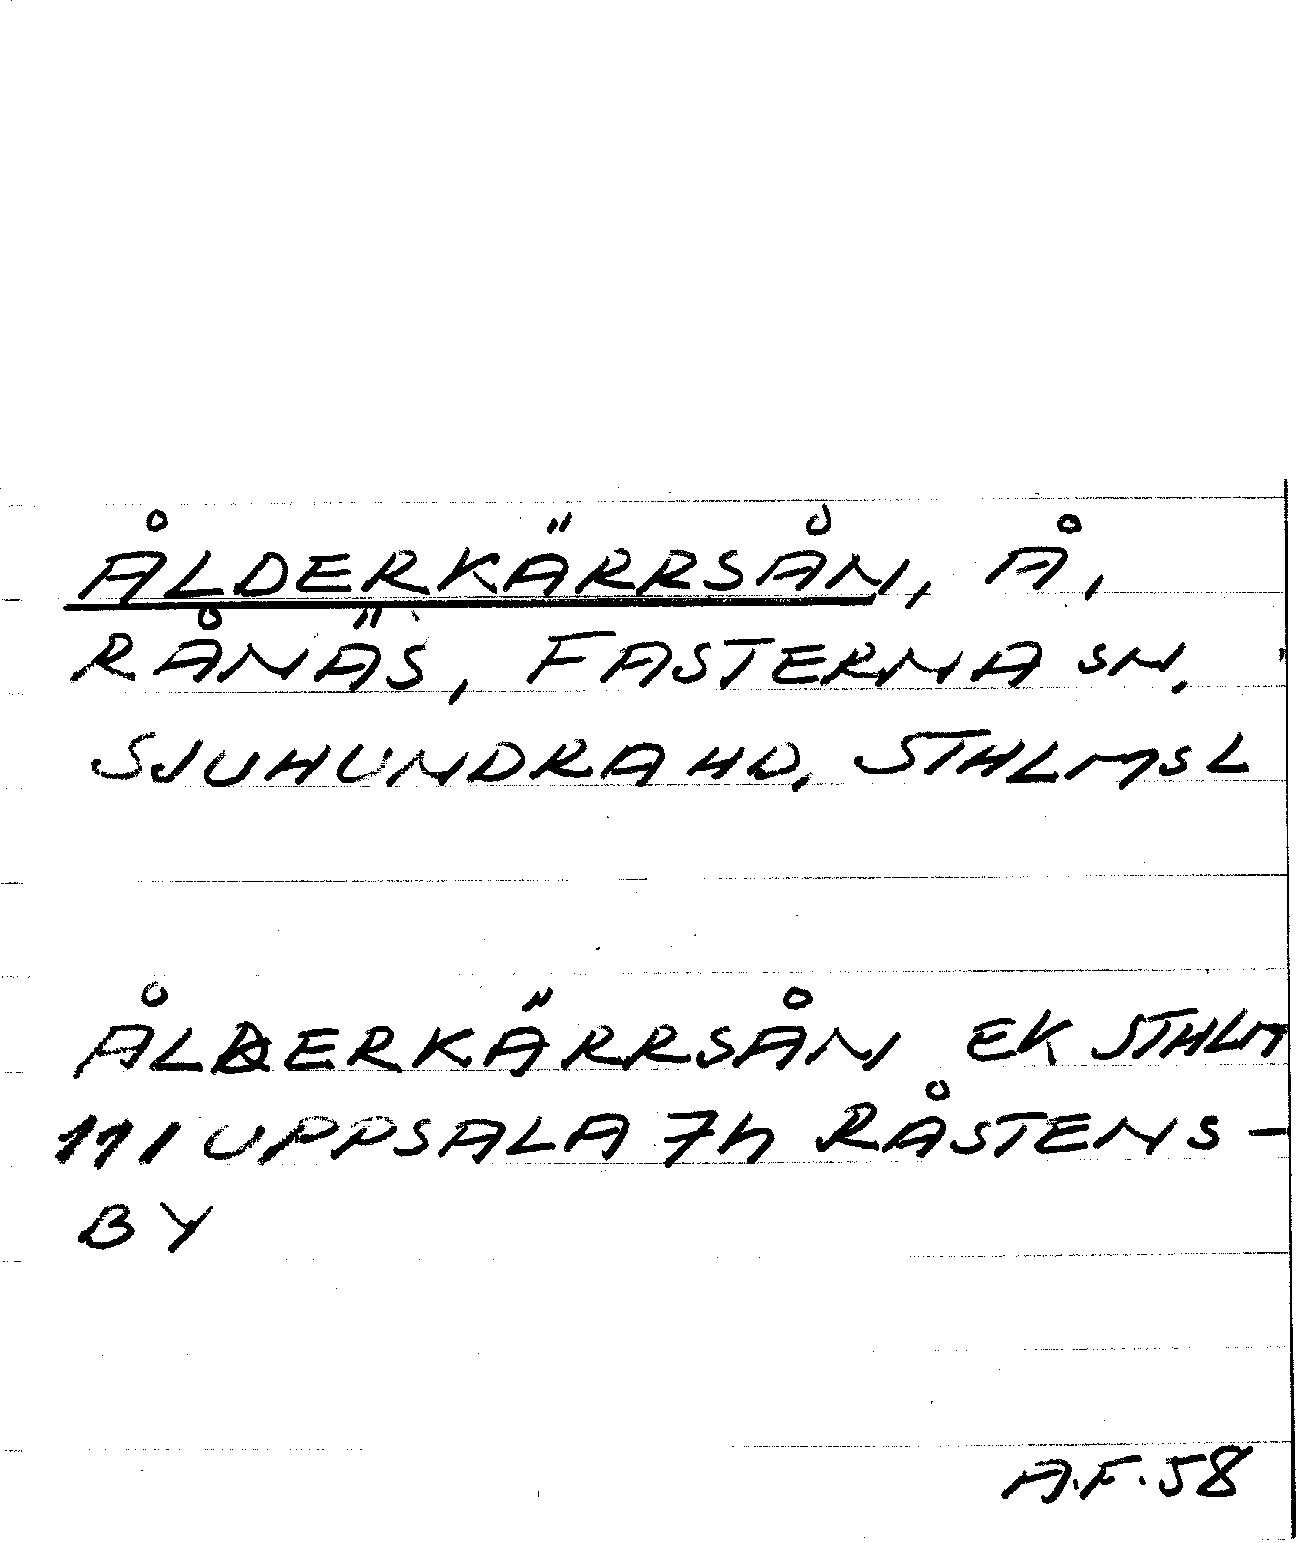 ÅLDERKÄRRSÅN, Å,
RÅNÄS, FASTERNA SN.
SJUHUNDRA HD, STHLMSL
ÅLDERKÄRRSÅN EK STHLM
111 UPPSALA 7h RÅSTENS-
BY
A.F. 58